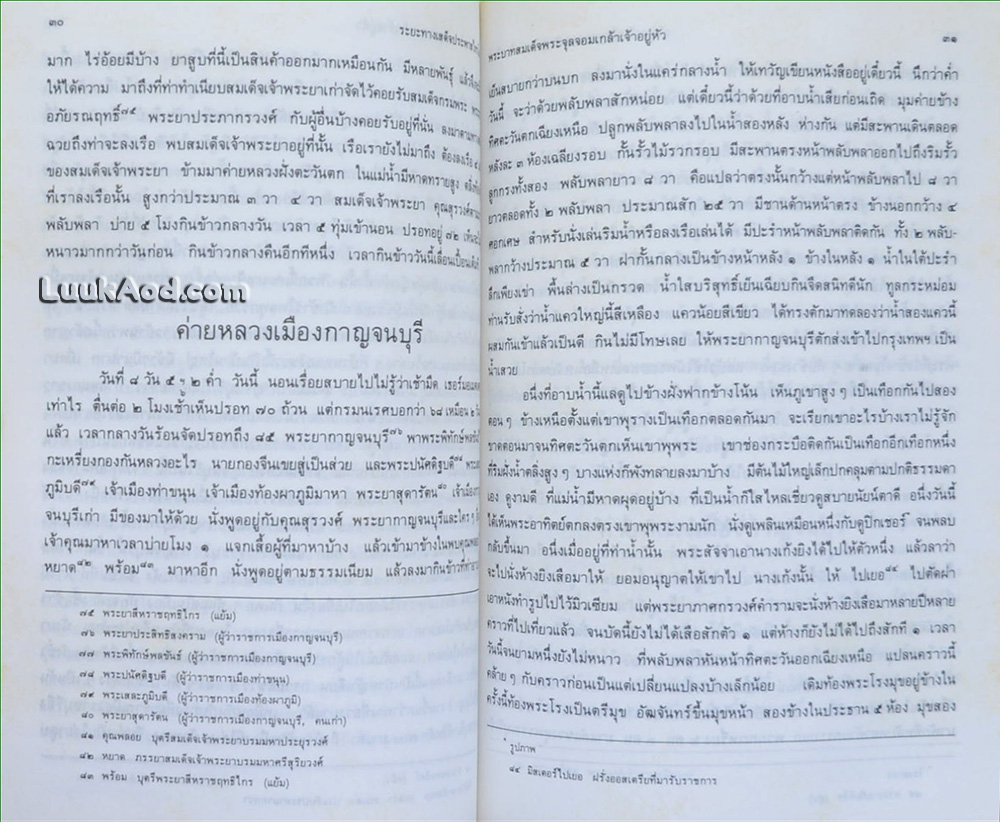 ๓๐
ระยะทางเสด็จประพาส
มาก ไร่อ้อยมีบ้าง ยาสูบที่นี้เป็นสินค้าออกมากเหมือนกัน มีหลายพันธุ์
ให้ได้ความ มาถึงที่ท่าทำเนียบสมเด็จเจ้าพระยาเก่าจัดไว้คอยรับสมเด็จกรมพระ
อภัยรณฤทธิ์๗๕ พระยาประภากรวงศ์ กับผู้อื่นบ้างคอยรับอยู่ที่นั่น
ฉวยถึงท่าจะลงเรือ พบสมเด็จเจ้าพระยาอยู่ที่นั้น เรือเรายังไม่มาถึง
ของสมเด็จเจ้าพระยา ข้ามมาค่ายหลวงฝั่งตะวันตก ในแม่น้ำมีหาดทรายสูง
ที่เราลงเรือนั้น สูงกว่าประมาณ ๓ วา ๔ วา สมเด็จเจ้าพระยา
พลับพลา บ่าย ๕ โมงกินข้าวกลางวัน เวลา ๕ ทุ่มเข้านอน ปรอทอยู่ ๗๒
หนาวมากกว่าวันก่อน กินข้าวกลางคืนอีกทีหนึ่ง
LuukAod.com
ค่ายหลวงเมืองกาญจนบุรี
วันที่ ๘ วัน ๕ฯ ๒ ค่ำ วันนี้ นอนเรื่อยสบายไปไม่รู้ว่าเช้ามืด
เท่าไร ตื่นต่อ ๒ โมงเช้าเห็นปรอท ๗๐ ถ้วน แต่กรมนเรศบอกว่า ๖๘
แล้ว เวลากลางวันร้อนจัดปรอทถึง ๘๕ พระยากาญจนบุรี๗๖ พาพระพิทักษ์พล
กะเหรี่ยงกองกันหลวงอะไร นายกองจีนเขยสู่เป็นส่วย และพระปนัคดิฐบดี๗๘
ภูมิบดี๗๙ เจ้าเมืองท่าขนุน เจ้าเมืองท้องผาภูมิมาหา พระยาสุดารัตน๘๐
จนบุรีเก่า มีของมาให้ด้วย นั่งพูดอยู่กับคุณสุรวงศ์ พระยากาญจนบุรีและใครๆ
เจ้าคุณมาหาเวลาบ่ายโมง ๑ แจกเสื้อผู้ที่มาหาบ้าง แล้วเข้ามาข้างใน
หยาด๘๒ พร้อม๘๓ มาหาอีก นั่งพูดอยู่ตามธรรมเนียม แล้วลงมากินข้าว
๗๕ พระยาสีหราชฤทธิไกร (แย้ม)
๗๖ พระยาประสิทธิสงคราม (ผู้ว่าราชการเมืองกาญจนบุรี)
๗๗ พระพิทักษ์พลขันธ์ (ผู้ว่าราชการเมืองกาญจนบุรี)
๗๘ พระปนัคดิฐบดี (ผู้ว่าราชการเมืองท่าขนุน)
๗๙ พระเสละภูมิบดี (ผู้ว่าราชการเมืองท้องผาภูมิ)
๘๐ พระยาสุดารัตน (ผู้ว่าราชการเมืองกาญจนบุรี, คนเก่า)
๘๑ คุณพลอย บุตรีสมเด็จเจ้าพระยาบรมมหาประยุรวงศ์
๘๒ หยาด ภรรยาสมเด็จเจ้าพระยาบรมมหาศรีสุริยวงศ์
๘๓ พร้อม บุตรีพระยาสีหราชฤทธิไกร (แย้ม)
พระบาทสมเด็จพระจุลจอมเกล้าเจ้าอยู่หัว
๓๑
เย็นสบายกว่าบนบก ลงมานั่งในแคร่กลางน้ำ ให้เทวัญเขียนหนังสืออยู่เดี๋ยวนี้ นึกว่าค่ำ
วันนี้ จะว่าด้วยพลับพลาสักหน่อย แต่เดี๋ยวนี้ว่าด้วยที่อาบน้ำเสียก่อนเถิด มุมค่ายข้าง
ทิศตะวันตกเฉียงเหนือ ปลูกพลับพลาลงไปในน้ำสองหลัง ห่างกัน แต่มีสะพานเดินตลอด
หลังละ ๓ ห้องเฉลียงรอบ กั้นรั้วไม้รวกรอบ มีสะพานตรงหน้าพลับพลาออกไปถึงริมรั้ว
ลูกกรงทั้งสอง พลับพลายาว ๘ วา คือแปลว่าตรงนั้นกว้างแต่หน้าพลับพลาไป ๘ วา
ยาวตลอดทั้ง ๒ พลับพลา ประมาณสัก ๒๕ วา มีชานด้านหน้าตรง ข้างนอกกว้าง ๔
ศอกเศษ สำหรับนั่งเล่นริมน้ำหรือลงเรือเล่นได้ มีปะรำหน้าพลับพลาติดกัน ทั้ง ๒ พลับ-
พลากว้างประมาณ ๕ วา ฝากั้นกลางเป็นข้างหน้าหลัง ๑ ข้างในหลัง ๑ น้ำในใต้ปะรำ
ลึกเพียงเข่า พื้นล่างเป็นกรวด น้ำใสบริสุทธิ์เย็นเฉียบกินจืดสนิทดีนัก ทูลกระหม่อม
ท่านรับสั่งว่าน้ำแควใหญ่นี้สีเหลือง แควน้อยสีเขียว ได้ทรงตักมาทดลองว่าน้ำสองแควนี้
ผสมกันเข้าแล้วเป็นดี กินไม่มีโทษเลย ให้พระยากาญจนบุรีตักส่งเข้าไปกรุงเทพฯ เป็น
น้ำเสวย
อนึ่งที่อาบน้ำนี้แลดูไปข้างฝั่งฟากข้างโน้น เห็นภูเขาสูงๆ เป็นเทือกกันไปสอง
ตอนๆ ข้างเหนือตั้งแต่เขาพุรางเป็นเทือกตลอดกันมา จะเรียกเขาอะไรบ้างเราไม่รู้จัก
ขาดตอนมาจนทิศตะวันตกเห็นเขาพุพระ เขาช่องกระบือติดกันเป็นเทือกอีกเทือกหนึ่ง
ที่ริมฝั่งน้ำตลิ่งสูงๆ บางแห่งก็พังทลายลงมาบ้าง มีต้นไม้ใหญ่เล็กปกคลุมตามปกติธรรมดา
เอง ดูงามดี ที่แม่น้ำมีหาดผุดอยู่บ้าง ที่เป็นน้ำก็ใสไหลเชี่ยวดูสบายนัยน์ตาดี อนึ่งวันนี้
ได้เห็นพระอาทิตย์ตกลงตรงเขาพุพระงามนัก นั่งดูเพลินเหมือนหนึ่งกับดูปิกเชอร์* จนพลบ
กลับขึ้นมา อนึ่งเมื่ออยู่ที่ท่าน้ำนั้น พระสัจจาเอานางเก้งยิงได้ไปให้ตัวหนึ่ง แล้วลาว่า
จะไปนั่งห้างยิงเสือมาให้ ยอมอนุญาตให้เขาไป นางเก้งนั้น ให้ ไปเยอ๘๔ ไปตัดผ่า
เอาหนังทำรูปไปไว้มิวเซียม แต่พระยาภาศกรวงศ์คำรามจะนั่งห้างยิงเสือมาหลายปีหลาย
คราวที่ไปเที่ยวแล้ว จนบัดนี้ยังไม่ได้เสือสักตัว ๑ แต่ห้างก็ยังไม่ได้ไปถึงสักที ๑ เวลา
วันนี้จนยามหนึ่งยังไม่หนาว ที่พลับพลาหันหน้าทิศตะวันออกเฉียงเหนือ แปลนคราวนี้
คล้ายๆ กับคราวก่อนเป็นแต่เปลี่ยนแปลงบ้างเล็กน้อย เดิมท้องพระโรงมุขอยู่ข้างใน
ครั้งนี้ท้องพระโรงเป็นตรีมุข อัฒจันทร์ขึ้นมุขหน้า สองข้างในประธาน ๕ ห้อง มุขสอง
* รูปภาพ
๘๔ มิสเตอร์ไปเยอ ฝรั่งออสเตรียที่มารับราชการ